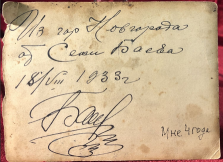 Из гор Новгорода
от Сени Баева
18/VIII 1933 г
Баев
Мне 4 года